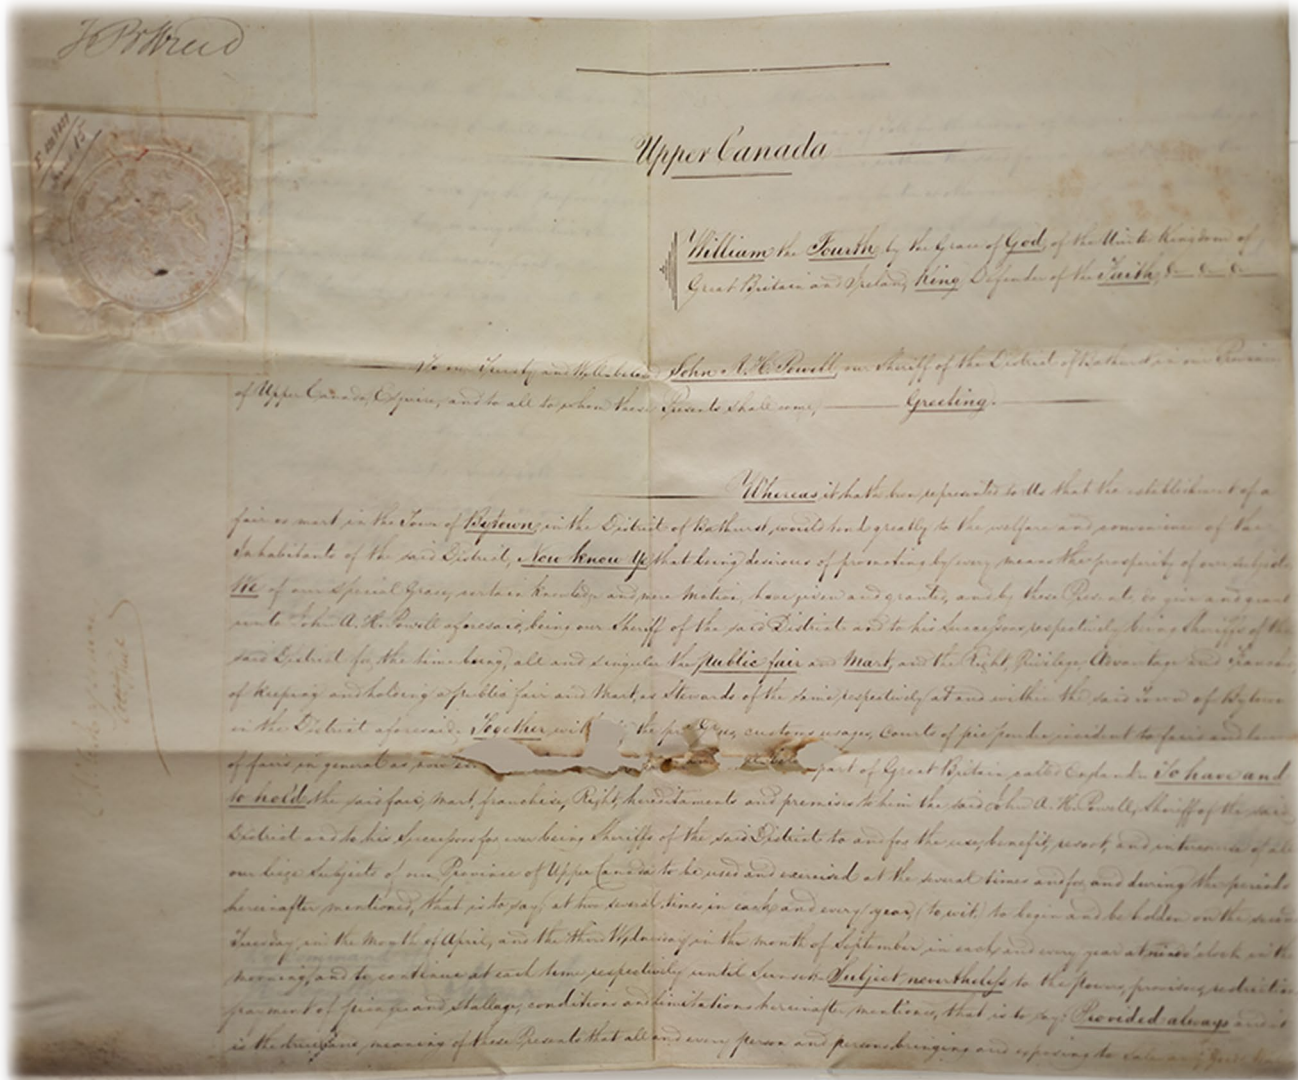 Upper Canada
William the Fourth by the Grace of God, of the United Kingdom of
Great Britain and Ireland, King, Defender of the Faith, &c &c &c
To our Trusty and Wellbeloved John A. H. Powell, our Sheriff of the District of Bathurst in our Province
of Upper Canada, Esquire, and to all to whom these Presents shall come, Greeting.
Whereas, it hath been represented to Us that the establishment of a
fair or mart in the Town of Bytown, in the District of Bathurst, would tend greatly to the welfare and convenience of the
Inhabitants of the said District, Now know Ye, that being desirous of promoting by every means the prosperity of our subjects
We of our special Grace, certain knowledge and mere motion, have given and granted, and by these Presents do give and grant
unto John A. H. Powell aforesaid, being our Sheriff of the said District and to his Successors respectively being Sheriffs of the
said District for the time being, all and singular the public fair and Mart, and the Right, Privilege, Advantage and Franchise
of keeping and holding a public fair and Mart, as Stewards of the same respectively at and within the said Town of Bytown
in the District aforesaid. Together with the customs, usages, Courts of pie poudre, incident to fairs and
of fairs in general as part of Great Britain, called England. To have and
to hold the said fair, Mart, franchise, Right, hereditaments and premises to him the said John A. H. Powell, Sheriff of the said
District and to his Successors for ever being Sheriffs of the said District to and for the use, benefit, resort, and intercourse of all
our liege Subjects of our Province of Upper Canada to be used and exercised at the several times and for and during the periods
hereinafter mentioned, that is to say, at two several times in each and every year, (to wit) to begin and be holden on the second
Tuesday, in the Month of April, and the third Wednesday in the month of September in each and every year at nine o'clock in the
morning, and to continue at each time respectively until Sunset Subject nevertheless to the powers, provisoes, restrictions
payment of picage and Stallage, conditions and limitations hereinafter mentioned, that is to say: Provided always and it
is the true meaning of these Presents that all and every person and persons bringing and exposing to Sale any